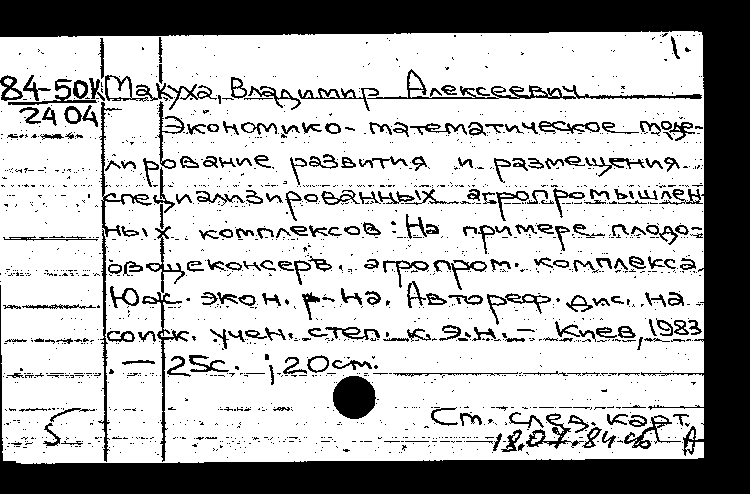 1.
84-50К Макуха, Владимир Алексеевич.
2404
Экономико-математическое моде-
лирование развития и размещения
специализированных агропромышлен
ных комплексов: На примере плодо-
овощеконсерв. агропром. комплекса
Юж. экон. р-на. Автореф. дис. на
соиск. учен. степ. к. э. н. – Киев, 1983
. — 25с. ; 20 см.
Cм. след. карт.
5
18.07.84
А